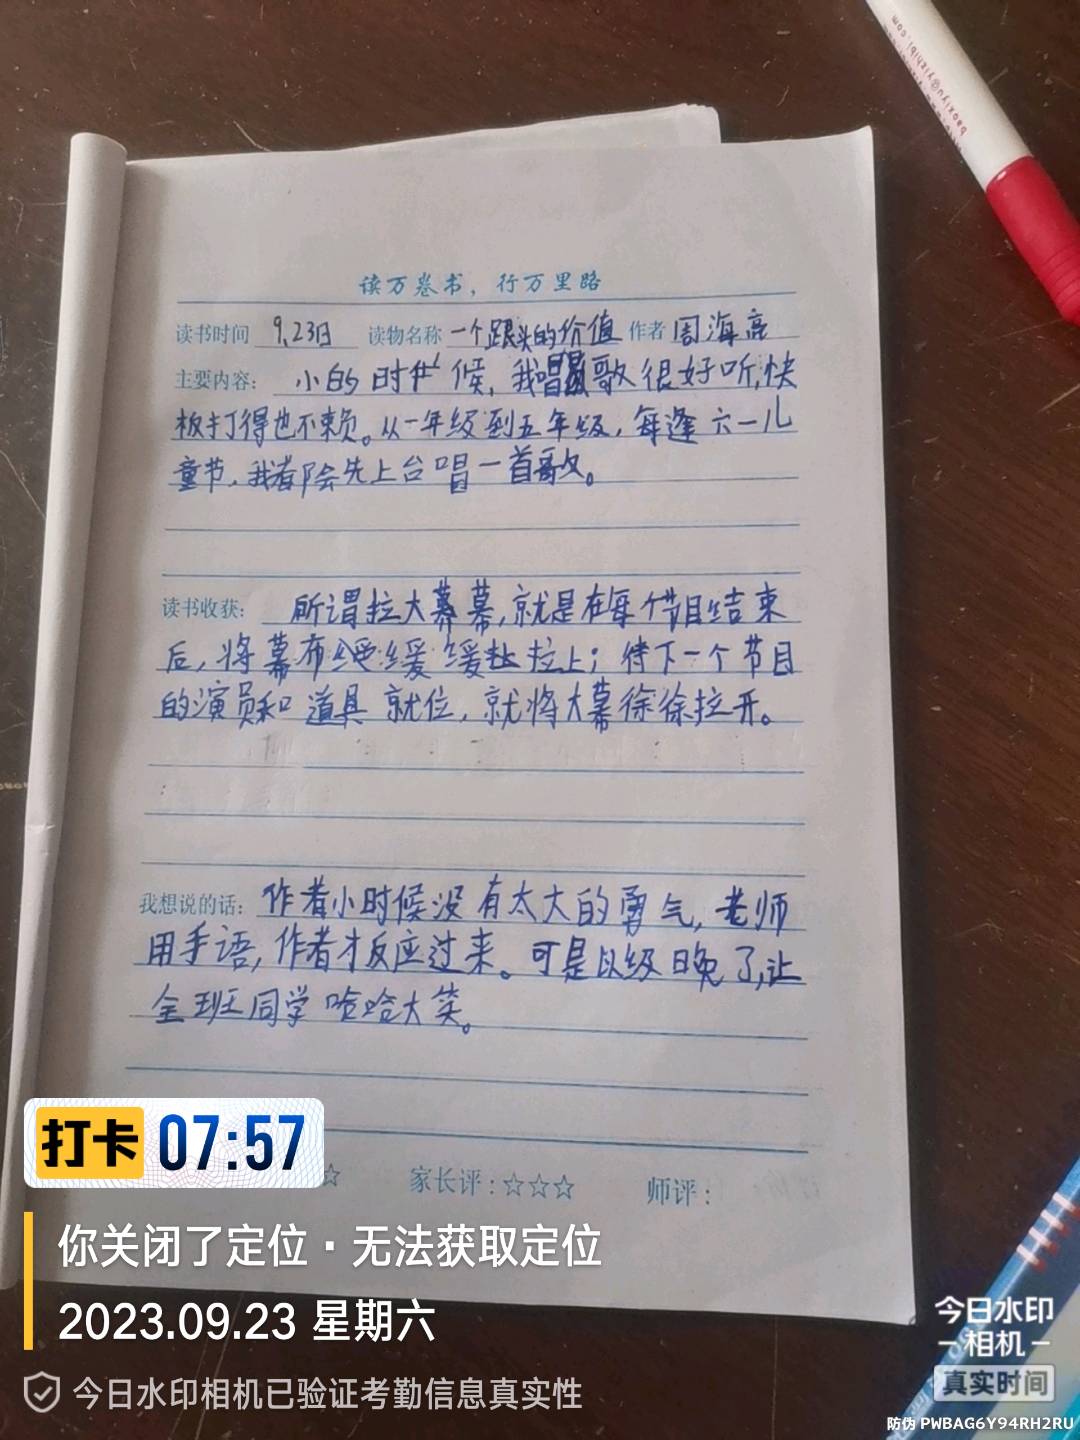 读万卷书，行万里路
读书时间 9.23日 读物名称 一个跟头的价值 作者 周海亮
主要内容： 小的时候，我唱歌很好听，快
板打得也不赖。从一年级到五年级，每逢六一儿
童节，我都会先上台唱一首歌。
读书收获： 所谓拉大幕，就是在每个节目结束
后，将幕布缓缓拉上；待下一个节目
的演员和道具就位，就将大幕徐徐拉开。
我想说的话： 作者小时候没有太大的勇气，老师
用手语，作者才反应过来。可是已经晚了，让
全班同学哈哈大笑。
☆ 家长评：☆☆☆ 师评：
打卡 07:57
你关闭了定位·无法获取定位
2023.09.23 星期六
今日水印相机已验证考勤信息真实性
今日水印
相机
真实时间
防伪 PWBAG6Y94RH2RU